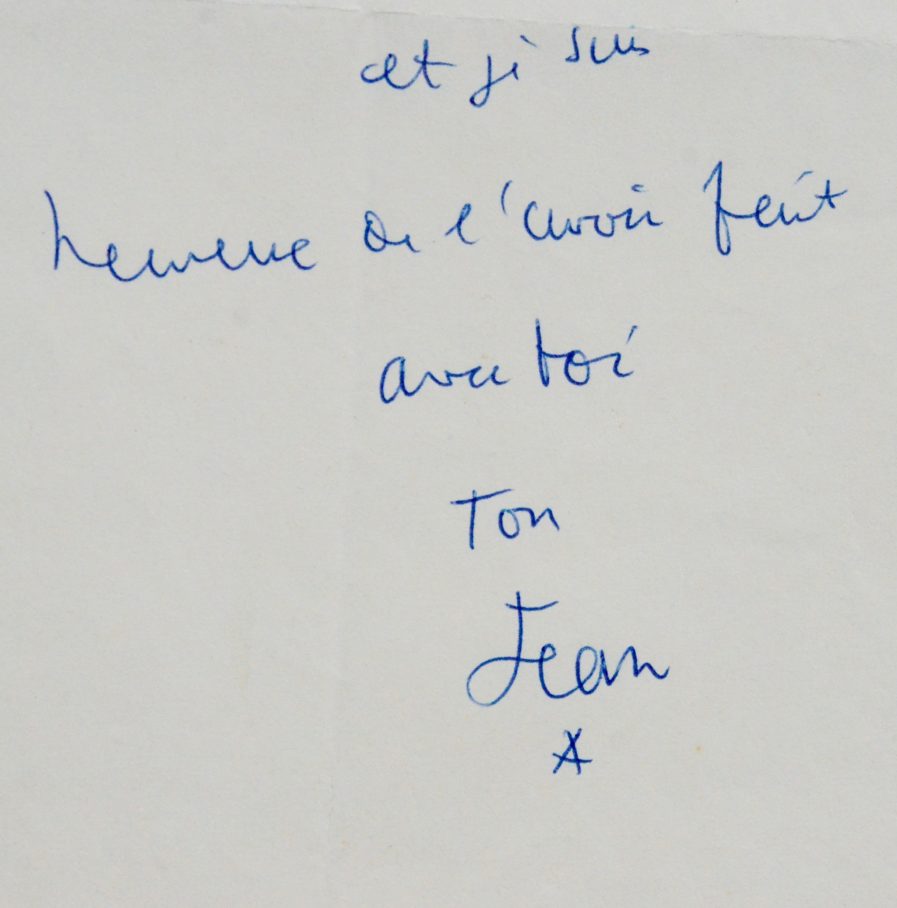 et je suis
heureux de l'avoir fait
avec toi
Ton
Jean